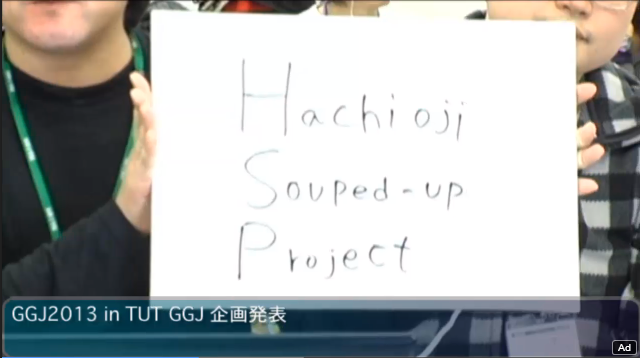 Hachioji
Souped-up
Project
GGJ2013 in TUT GGJ 企画発表
Ad